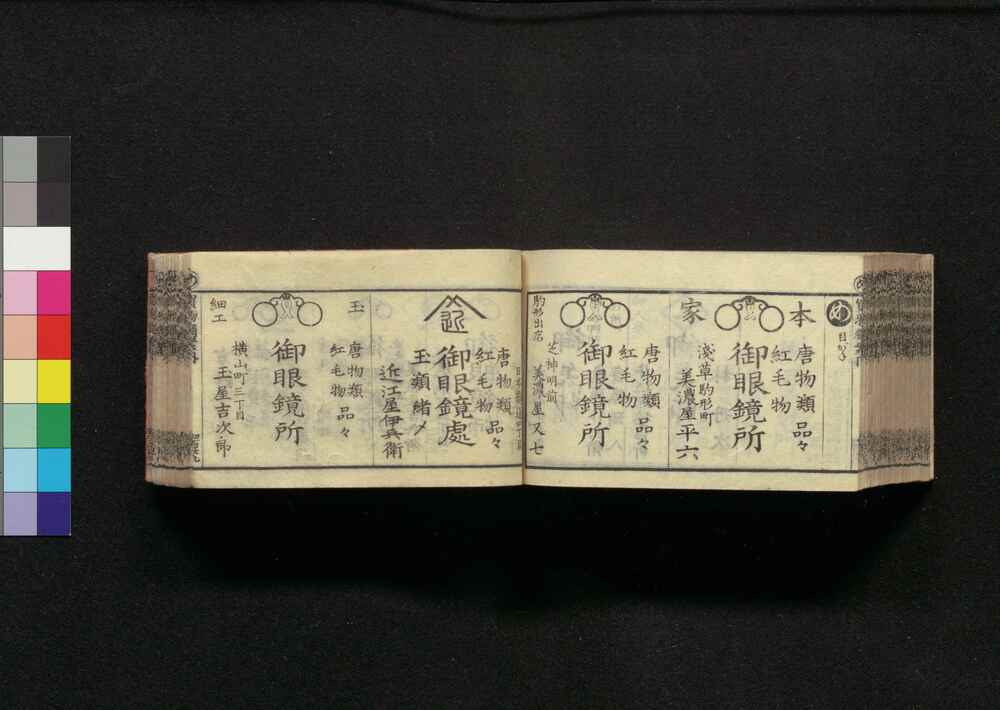 め
目がね
本
家
唐物類
紅毛物
品々
御眼鏡所
浅草駒形町
美濃屋平六
唐物類
紅毛物
品々
御眼鏡所
駒形出店
芝神明前
美濃屋又七
近
唐物類
紅毛物
品々
御眼鏡處
玉類緒〆
近江屋伊兵衛
玉
細工
唐物類
紅毛物
品々
御眼鏡所
横山町三丁目
玉屋吉次郎